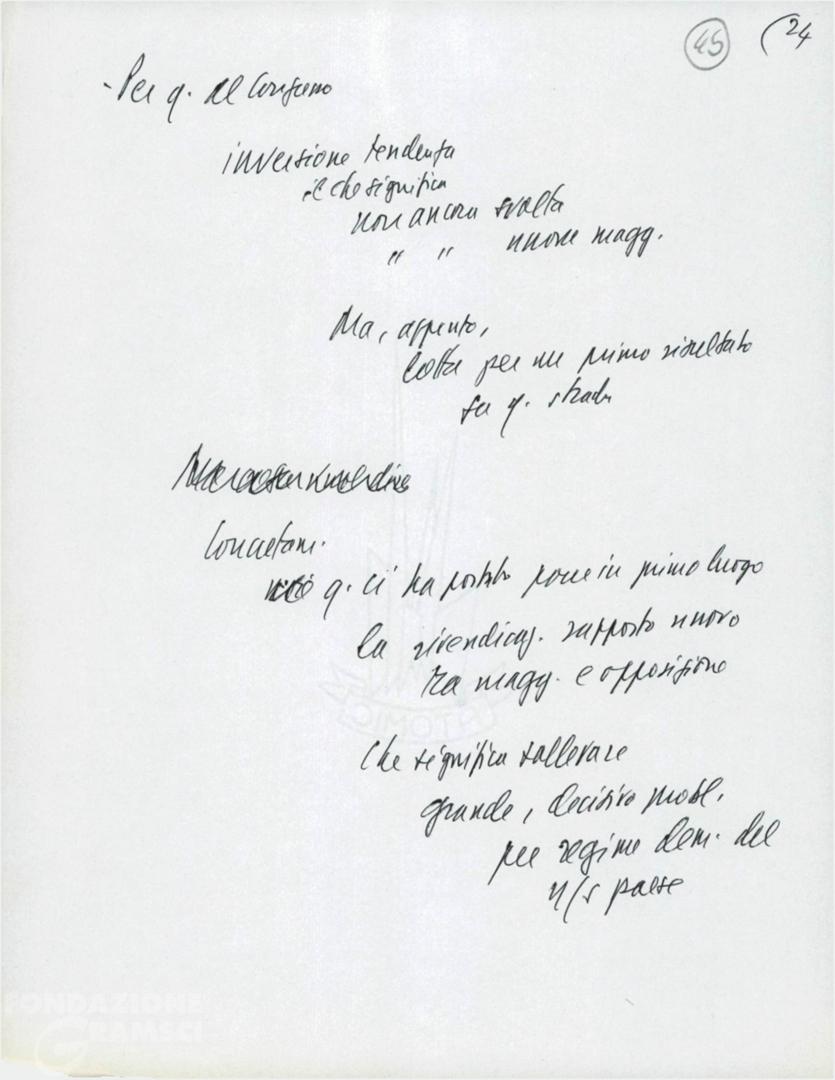 45 (24
- Per q. al Congresso
inversione tendenza
il che significa
non ancora svolta
" " nuove magg.
Ma, appunto,
lotta per un primo risultato
su q. strada
Concretam.
q. ci ha portato porre in primo luogo
la rivendicaz. rapporto nuovo
tra magg. e opposizione
Che significa sollevare
grande, decisivo probl.
per regime dem. del
n/s paese
FONDAZIONE
GRAMSCI